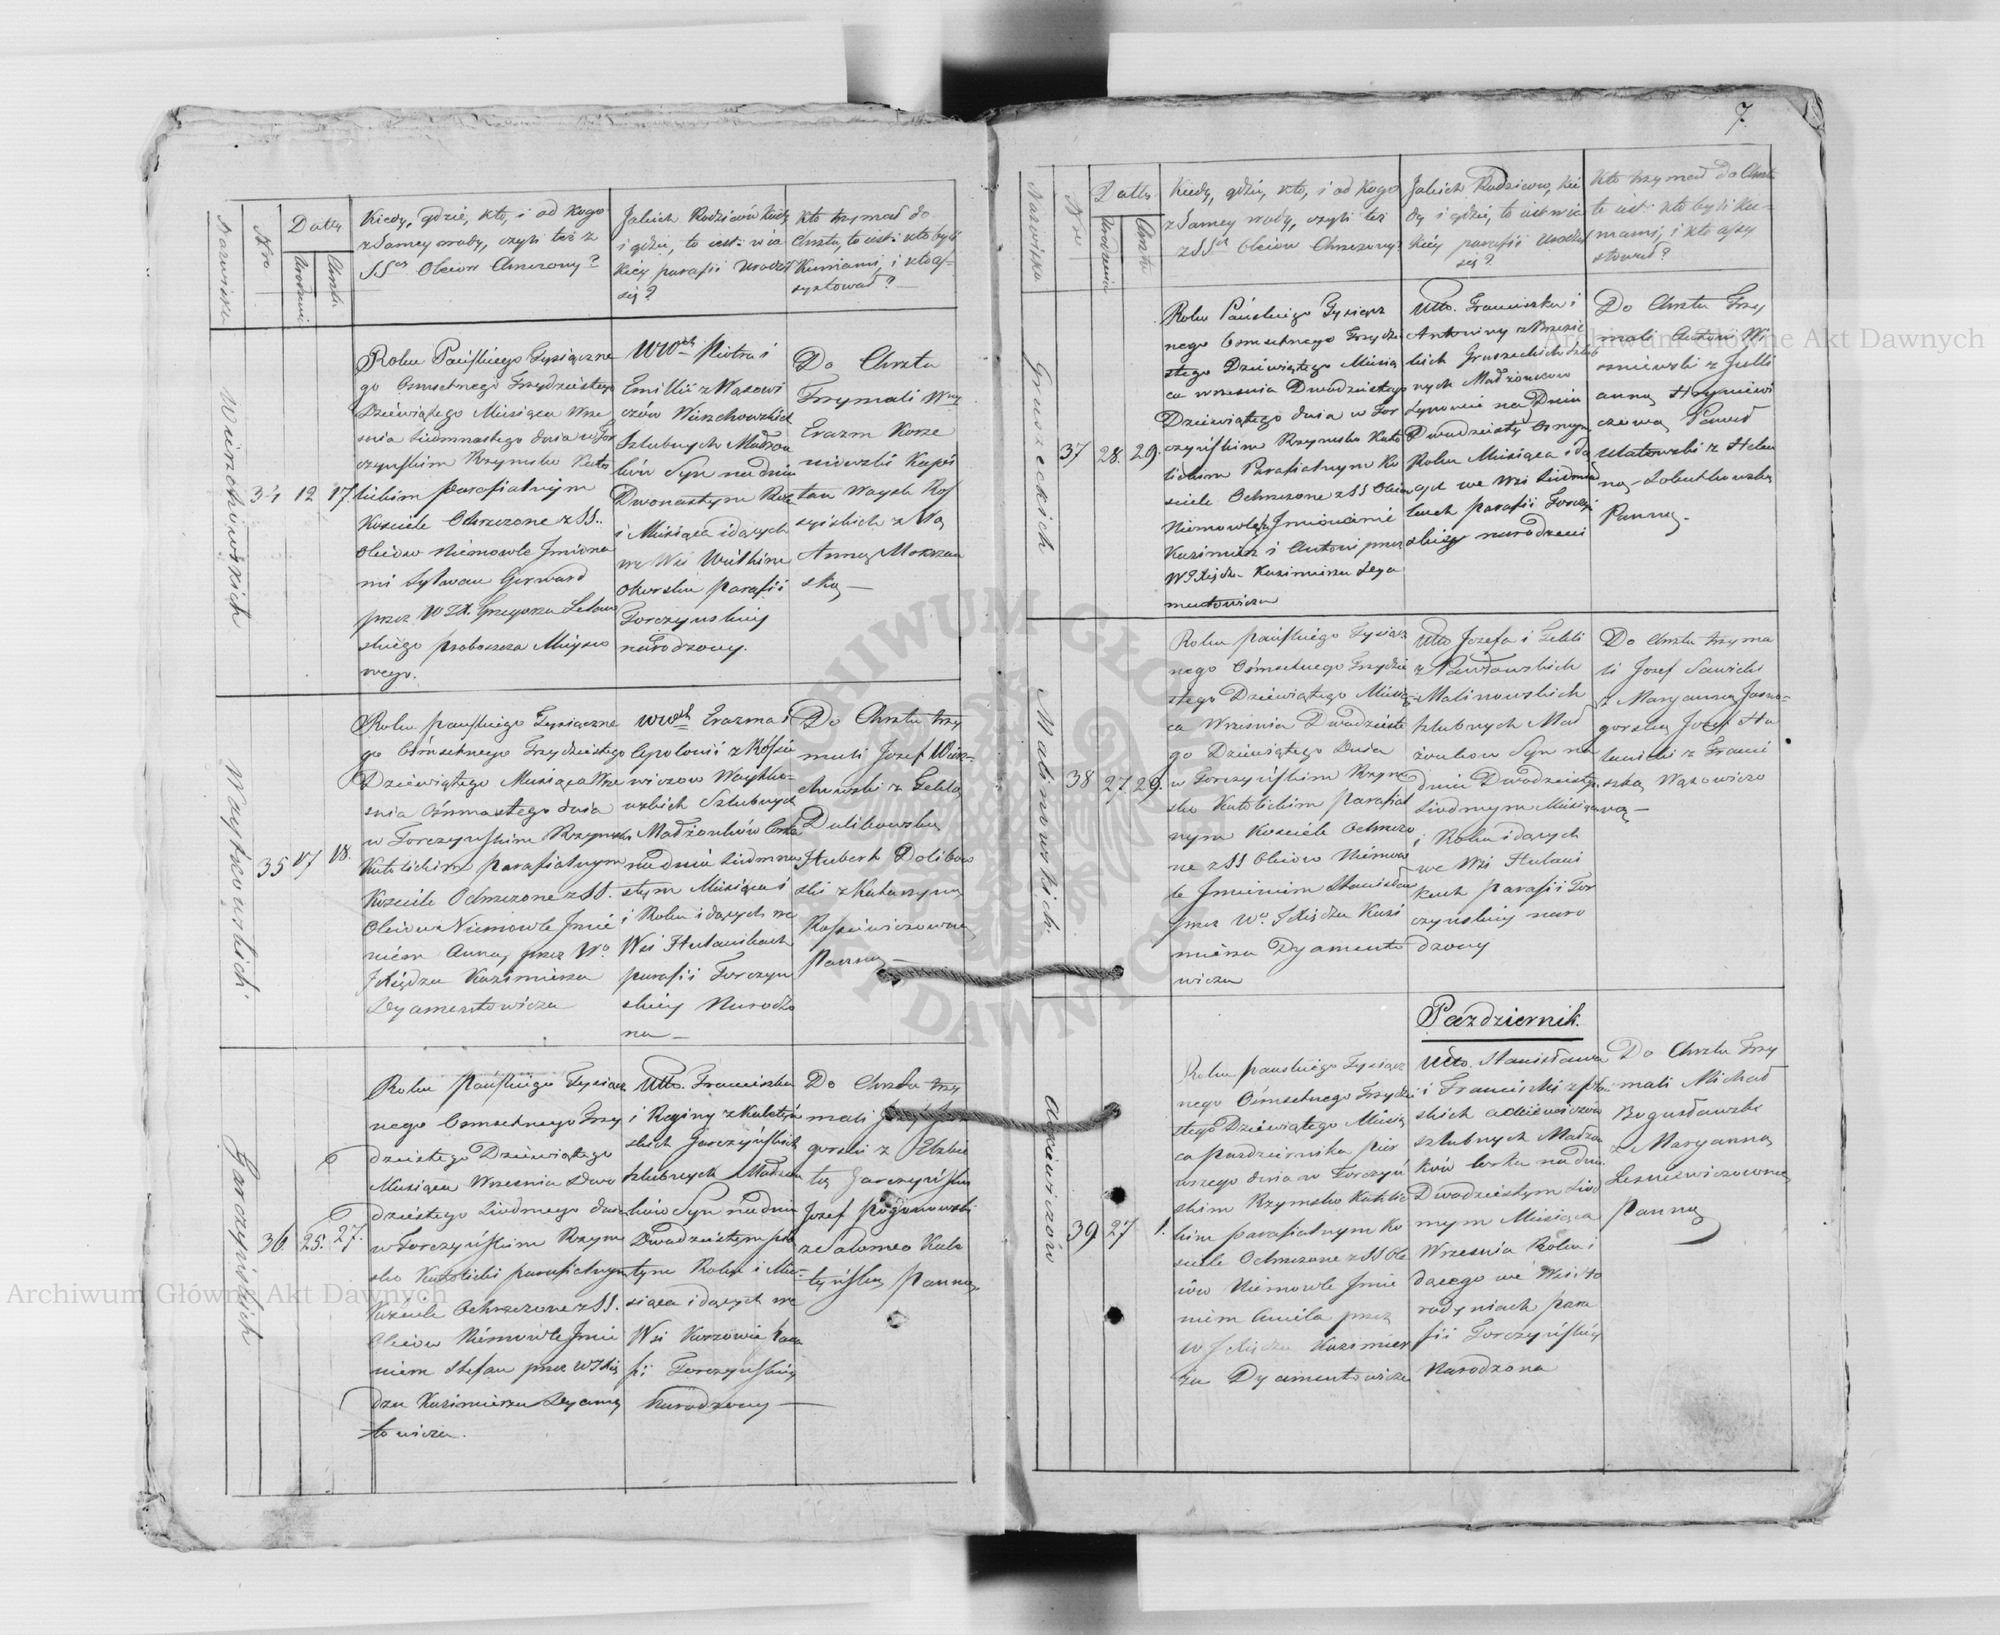 7.
Nazwisko
Nro
Datty
Urodzenia
Chrztu
Kiedy, gdzie, kto, i od kogo
z Samey wody, czyli też z
SSch Oleiow Chrzczony?
Jakich Rodziców kiedy
i gdzie, to iest: w ia
kiey parafii Urodził
się?
Kto trzymał do
Chrztu, to iest: kto byli
Kumami, i kto as-
systował?
Wierzchowskich
34
12
17.
Roku Pańskiego Tysiączne
go Ośmsetnego Trzydziestego
Dziewiątego Miesiąca Wrze
śnia Siedmnastego dnia w Tor
czyńskim Rzymsko Kato
lickim parafialnym
Kościele Ochrzczone z SS.
Oleiow Niemowle Imiona
mi Sylwan Gerward
przez WJX. Grzegorza
skiego proboszcza Mieysco
wego.
WWch Piotra i
Emilii z Wąsowi
czów Wierzchowskich
Szlubnych Małżon
ków Syn na dniu
Dwonastym Roku
i Miesiąca idących
we Wsi
parafii
Torczynskiey
narodzony.
Do Chrztu
Trzymali Wny
Erazm Korze
niowski Kapi
tan Woysk Ros
syiskich z Wą
Anną Mokrzan
ską —
Woytkowskich
35
17
18.
Roku pańskiego Tysiączne
go Ośmsetnego Trzydziestego
Dziewiątego Miesiąca Wrze
snia Ośmnastego dnia
w Torczyńskim Rzymsko
Katolickim parafialnym
Kościele Ochrzczone z SS.
Oleiow Niemowle Imie
niem Anna, przez Wo
JXiędza Kazimierza
Dyamentowicza
WWch Erazma i
Apolonii z Rośce
wiczow Woytko-
wskich Szlubnych
Małżonków Corka
na dniu Siedmna
stym Miesiąca i
i Roku idących we
Wsi Hulanikach
parafii Torczyn
skiey Narodzo
na —
Do Chrztu trzy
mali Jozef Wierz-
chowski z Teklą
Dulibowską
Hubert Dolibow
ski z Katarzyną
Rościewiczowną
Panną —
Garczyńskich
36.
25.
27.
Roku Pańskiego Tysiącz
nego Osmsetnego Trzy
dziestego Dziewiątego
Miesiąca Wrzesnia Dwu
dziestego Siodmego dnia
w Torczyńskim Rzym
sko Katolicki parafialnym
Kościele Ochrzczone z SS.
Oleiow Niemowle Imie
niem Stefan przez WJXię
dza Kazimierza Dyamen
towicza.
Utto. Franciszka
i Reginy z Kuletyń
skich Garczyńskich
szlubnych Małżon
ków Syn na dniu
Dwudziestym pią
tym Roku i Mie-
siąca idących we
Wsi Korzowie para
fii Torczyńskiey
Narodzony —
Do Chrztu trzy
mali
gorski z Elżbie
tą Garczyńską
Jozef Pogonowski
ze Salomeą Kule
tyńską Panną
Nazwisko
Nro
Datty
Urodzenia
Chrztu
Kiedy, gdzie, kto, i od kogo
z Samey wody, czyli też
z SSch Oleiów Chrzczony?
Jakich Rodziców, kie
dy i gdzie, to iest w ia
kiey parafii Urodził
się?
Kto trzymał do Chrz
tu iest: kto byli Ku-
mami, i kto assy
stował?
Gruszeckich
37
28.
29.
Roku Pańskiego Tysiącz
nego Osmsetnego Trzydzie
stego Dziewiątego Miesią
ca wrzesnia Dwudziestego
Dziewiątego dnia w Tor
czyńskim Rzymsko Kato
lickim Parafialnym Ko
sciele Ochrzczone z SS Oleiow
Niemowlęta Imionami
Kazimierz i Antoni przez
WJXiędza Kazimierza Dya
mentowicza
Utto. Franciszka i
Antoniny z Brzezic
kich Gruszeckich szlub
nych Małżonków
Synowie na Dniu
Dwudziestym Osmym
Roku Miesiąca idą
cych we Wsi
parafii Torczyń
skiey narodzeni
Do Chrztu Trzy
mali Antoni Wi
sniewski z Julli
anną Hryniewi
czową Paweł
Ulatowski z Hele
ną
Panną.
Malinowskich.
38
27
29.
Roku pańskiego Tysiącz
nego Ośmsetnego Trzydzie
stego Dziewiątego Miesią
ca Wrzesnia Dwudzieste
go Dziewiątego Dnia
w Torczyńskim Rzym
sko Katolickim parafial
nym Kościele Ochrzczo
ne z SS Oleiow Niemow
le Imieniem Stanisław
przez Wo. JXiędza Kazi
mierza Dyamento
wicza
Utto Jozefa i Tekli
z Pawłowskich
Malinowskich
szlubnych Mał
żonkow Syn na
dniu Dwudziestym
Siodmym Miesiąca
i Roku idących
we Wsi Hulani
kach parafii Tor
czyńskiey naro
dzony
Do Chrztu trzyma
li Jozef Sawicki
z Maryanną Jasno-
gorską Jozef Ha
lanicki z Franci
szką Wąsowiczo
wą —
Październik.
39
27
1.
Roku pańskiego Tysiącz
nego Ośmsetnego Trzydzie
stego Dziewiątego Miesią
ca pazdziernika pier
wszego dnia w Torczyń
skim Rzymsko Katolic
kim parafialnym Ko
sciele Ochrzczone z SS Ole
iów Niemowle Imie
niem Aniela przez
WJXiędza Kazimier
za Dyamentowicza
Utto. Stanisława
i Franciszki z
skich
szlubnych Małżon
ków Corka na dniu
Dwudziestym Siod
mym Miesiąca
Wrzesnia Roku i
dącego we Wsi Ho
rodyniach para
fii Torczyńskiey
Narodzona
Do Chrztu Trzy
mali Michał
Bogusławski
z Maryanną
Lesniewiczowną
Panną
Archiwum Główne Akt Dawnych
Archiwum Główne Akt Dawnych
ARCHIWUM GŁÓWNE AKT DAWNYCH